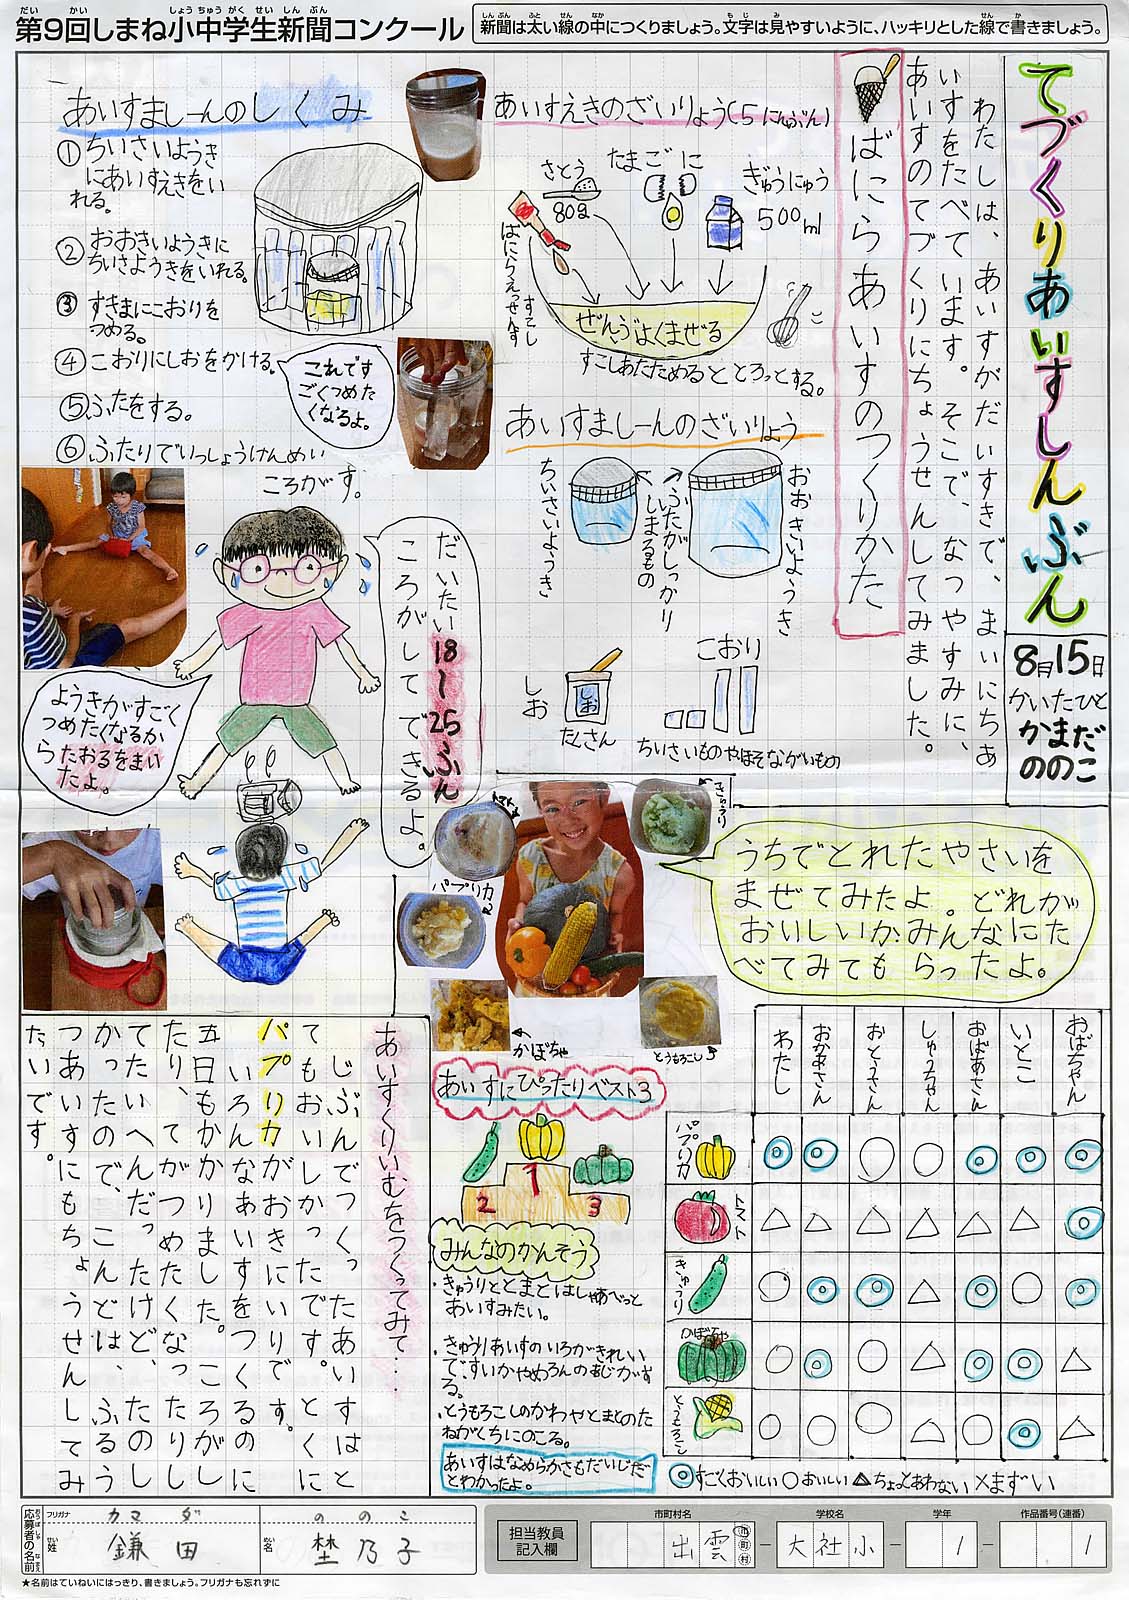 第9回しまね小中学生新聞コンクール
新聞は太い線の中につくりましょう。文字は見やすいように、ハッキリとした線で書きましょう。
てづくりあいすしんぶん
8月15日
かいたひと
かまだ
ののこ
わたしは、あいすがだいすきで、まいにちあ
いすをたべています。そこで、なつやすみに、
あいすのてづくりにちょうせんしてみました。
ばにらあいすのつくりかた
あいすえきのざいりょう(5にんぶん)
さとう
80g
たまごに
ぎゅうにゅう
500ml
ばにらえっせんす
すこし
ぜんぶよくまぜる
すこしあたためるととろっとする。
あいすましーんのざいりょう
ちいさいようき
ふたがしっかり
しまるもの
おおきいようき
しお
しお
たくさん
こおり
ちいさいものやほそながいもの
あいすましーんのしくみ
①ちいさいようき
にあいすえきをい
れる。
②おおきいようきに
ちいさようきをいれる。
③すきまにこおりを
つめる。
④こおりにしおをかける。
これです
ごくつめた
くなるよ。
⑤ふたをする。
⑥ふたりでいっしょうけんめい
ころがす。
だいたい18〜25ふん
ころがして できるよ。
ようきがすごく
つめたくなるか
らたおるをまい
たよ。
トマト
きゅうり
パプリカ
かぼちゃ
とうもろこし
うちでとれたやさいを
まぜてみたよ。どれが
おいしいか、みんなにた
べてみてもらったよ。
あいすにぴったりベスト3
1
2
3
みんなのかんそう
・きゅうりととまとはしゃあべっと
あいすみたい。
・きゅうりあいすのいろがきれい
で、すいかやめろんのあじがす
る。
・とうもろこしのかわやとまとのた
ねがくちにのこる。
あいすはなめらかさもだいじだ
とわかったよ。
わたし
おかあさん
おとうさん
しゅうちゃん
おばあさん
いとこ
おばちゃん
パプリカ ◎ ◎ ○ ○ ◎ ◎ ◎
トマト △ △ △ △ △ △ ◎
きゅうり ○ ◎ ◎ △ ◎ ○ ◎
かぼちゃ ○ ◎ ○ △ ◎ ◎ △
とうもろこし ○ ○ ○ △ ○ ◎ △
◎すごくおいしい ○おいしい △ちょっとあわない ×まずい
あいすくりいむをつくってみて…
じぶんでつくったあいすはと
てもおいしかったです。とくに
パプリカがおきにいりです。
いろんなあいすをつくるのに
五日もかかりました。ころがし
たり、てがつめたくなったりし
てたいへんだったけど、たのし
かったので、こんどは、ふるう
つあいすにもちょうせんしてみ
たいです。
応募者の名前
フリガナ カマダ ののこ
姓 鎌田 名 埜乃子
★名前はていねいにはっきり、書きましょう。フリガナも忘れずに
担当教員
記入欄
市町村名 学校名 学年 作品番号(連番)
出雲 市町村 - 大社小 - 1 - 1